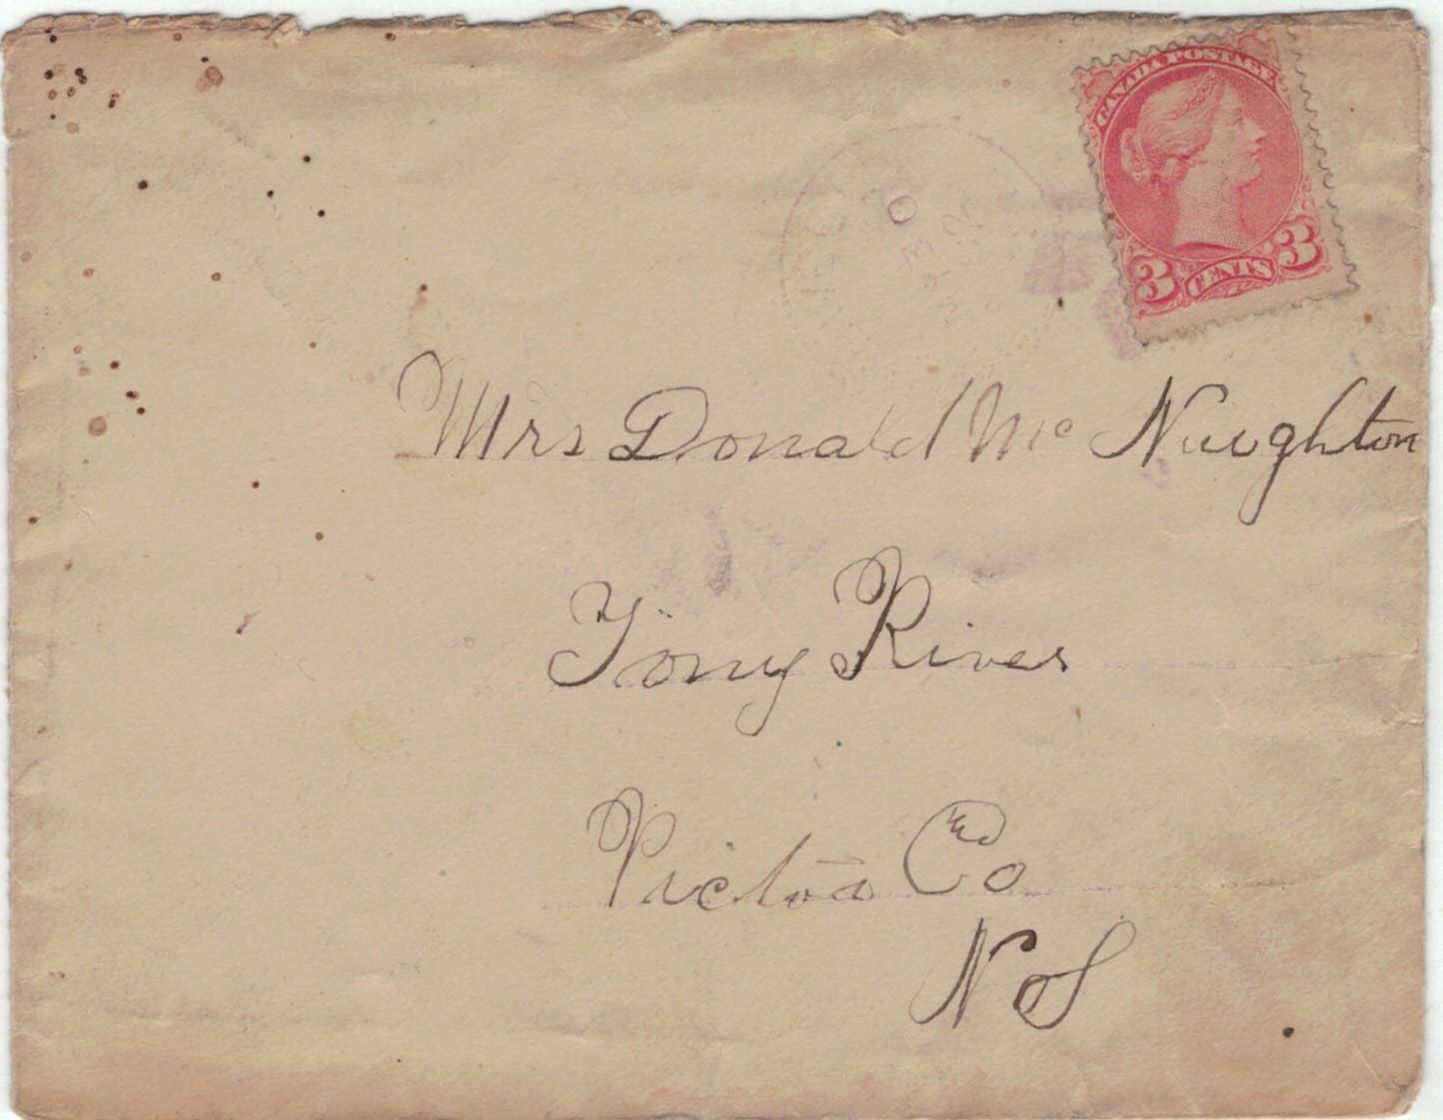 CANADA POSTAGE
3 CENTS 3
Mrs Donald Mc Naughton
Tony River
Pictou Co
N S